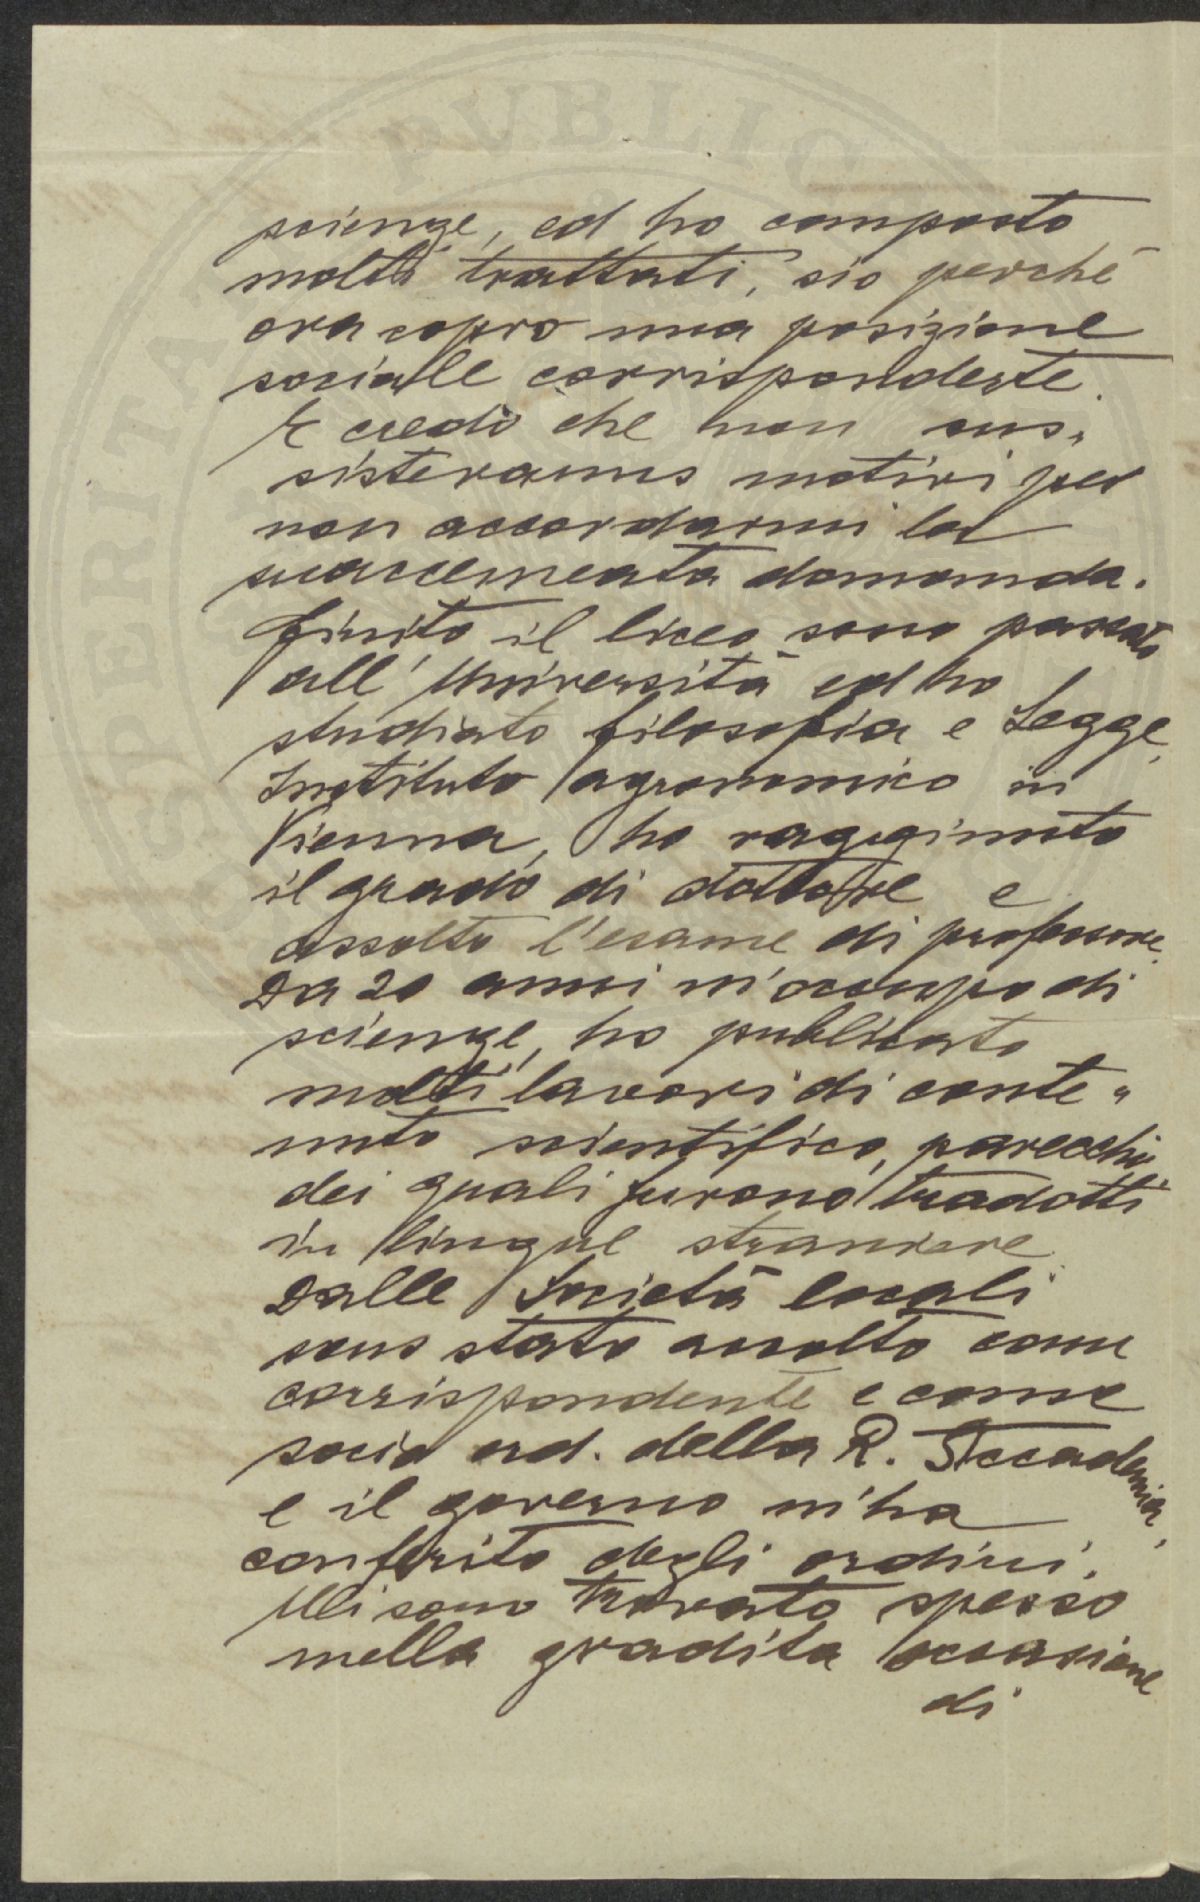 PERITATI PUBLIC
scienze, ed ho composto
molti trattati, sio perchè
ora copro una posizione
sociale corrispondente.
E credo che non sus„
sisteranno motivi per
non accordarmi la
suaccennata domanda.
Finito il liceo sono passato
all' Università ed ho
studiato filosofia e Legge,
Institulo agronomico in
Vienna, ho raggiunto
il grado di dottore e
assolto l'esame di professore.
Da 20 anni m'occupo di
scienze, ho publicato
molti lavori di conte„
nuto scientifico, parecchi
dei quali furono tradotti
in lingue straniere.
Dalle Società locali
sono stato accolto come
corrispondente e come
socio ord. della R. Accademia,
e il governo m'ha
conferito degli ordini.
Mi sono trovato spesso
nella gradita occasione
di